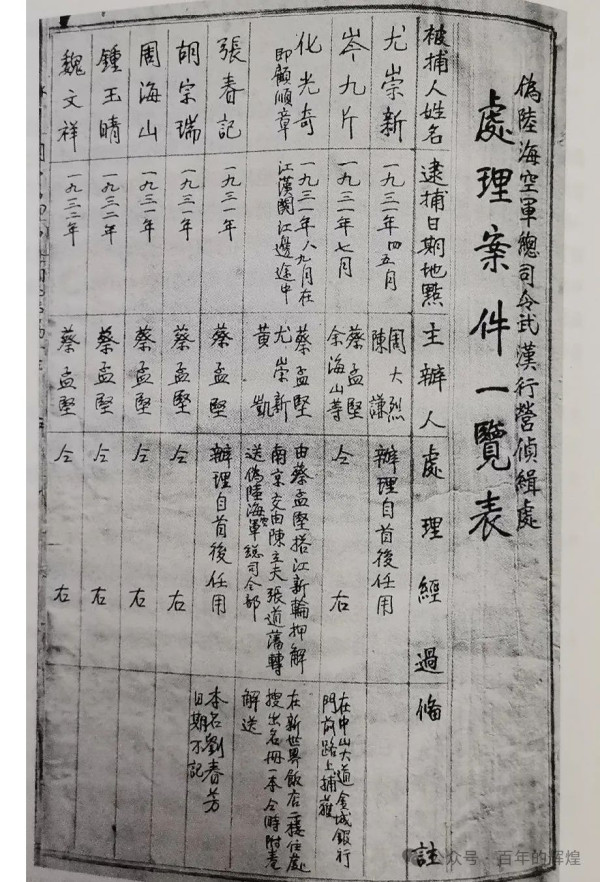 偽陸海空軍總司令武漢行營偵緝處
處理案件一覽表
被捕人姓名 逮捕日期地點 主辦人 處理經過 備註
尤崇新
一九三一年四五月
周大烈
陳謙
辦理自首後任用
岑九片
一九三一年七月
蔡孟堅
余海山等
仝右
在中山大道金城銀行
門前路上捕獲
化光奇
即顧順章
一九三一年八九月在
江漢関江邊途中
蔡孟堅
尤崇新
黄凱
由蔡孟堅搭江新輪押解
南京交由陳立夫張道藩轉
送偽陸海空軍總司令部
在新世界飯店二樓住處
搜出名冊一本仝時附卷
解送
張春記
一九三一年
蔡孟堅
辦理自首後任用
本名劉春芳
日期不記
胡宗瑞
一九三一年
蔡孟堅
仝右
周海山
一九三一年
蔡孟堅
仝右
鍾玉晴
一九三二年
蔡孟堅
仝右
魏文祥
一九三二年
蔡孟堅
仝右
公众号·百年的辉煌